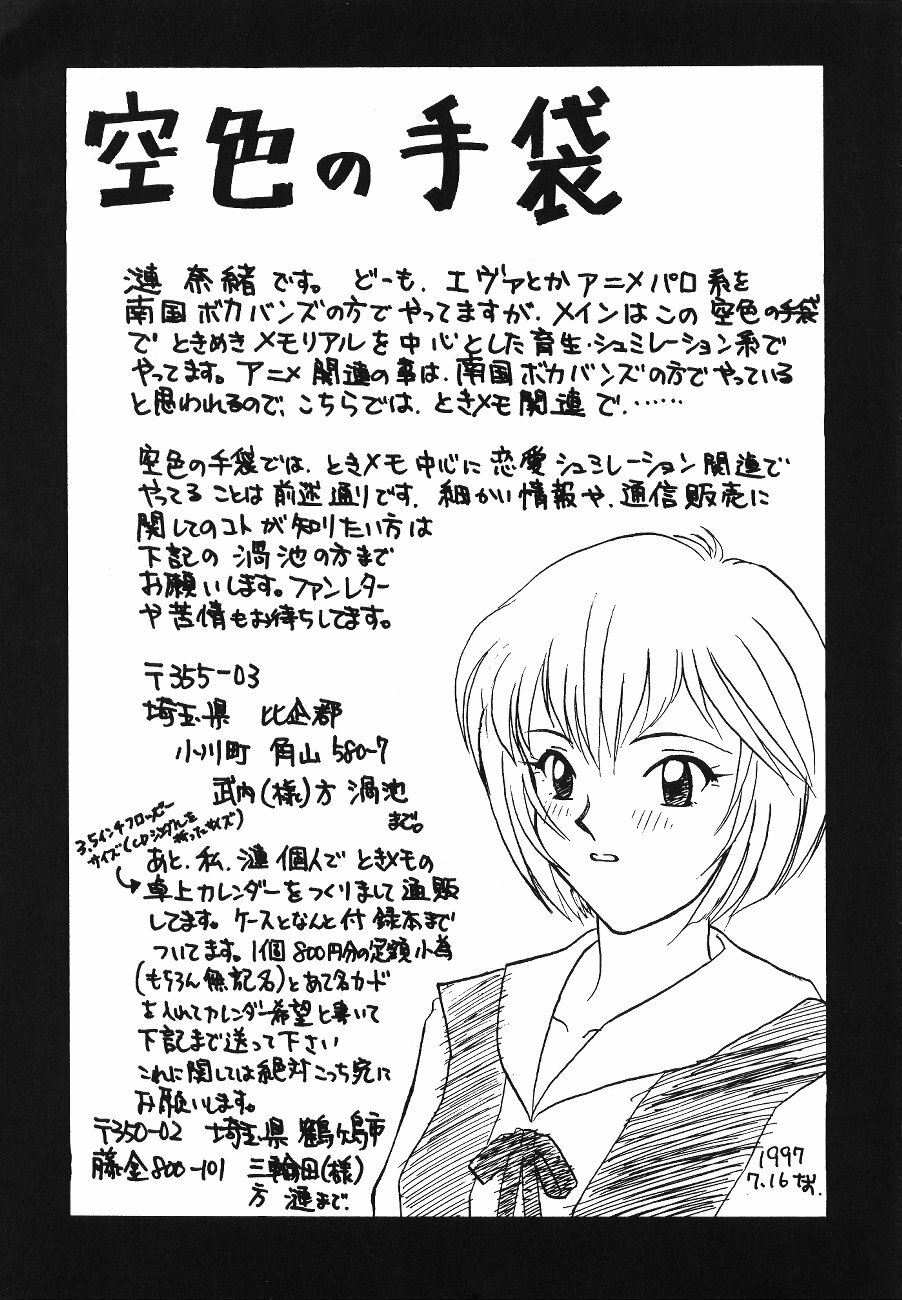 空色の手袋
漣 奈緒です。どーも、エヴァとかアニメパロ系を
南国ボカバンズの方でやってますが、メインはこの空色の手袋
でときめきメモリアルを中心とした育生・シュミレーション系で
やってます。アニメ関連の事は、南国ボカバンズの方でやっている
と思われるので、こちらでは、ときメモ関連で……
空色の手袋では、ときメモ中心に恋愛シュミレーション関連で
やってることは前述通りです。細かい情報や、通信販売に
関してのコトが知りたい方は
下記の渦池の方まで
お願いします。ファンレター
や苦情もお待ちしてます。
〒355-03
埼玉県 比企郡
小川町 角山 580-7
武内(様)方 渦池
まで。
3.5インチフロッピー
サイズ(CDシングルを
折ったサイズ)
あと、私、漣個人でときメモの
卓上カレンダーをつくりまして通販
してます。ケースとなんと付録本まで
ついてます。1個800円分の定額小為
(もちろん無記名)とあて名カード
を入れてカレンダー希望と書いて
下記まで送って下さい
これに関しては絶対こっち宛に
お願いします。
〒350-02 埼玉県 鶴ヶ島市
藤金800-101 三輪田(様)
方 漣まで。
1997
7.16 なお.